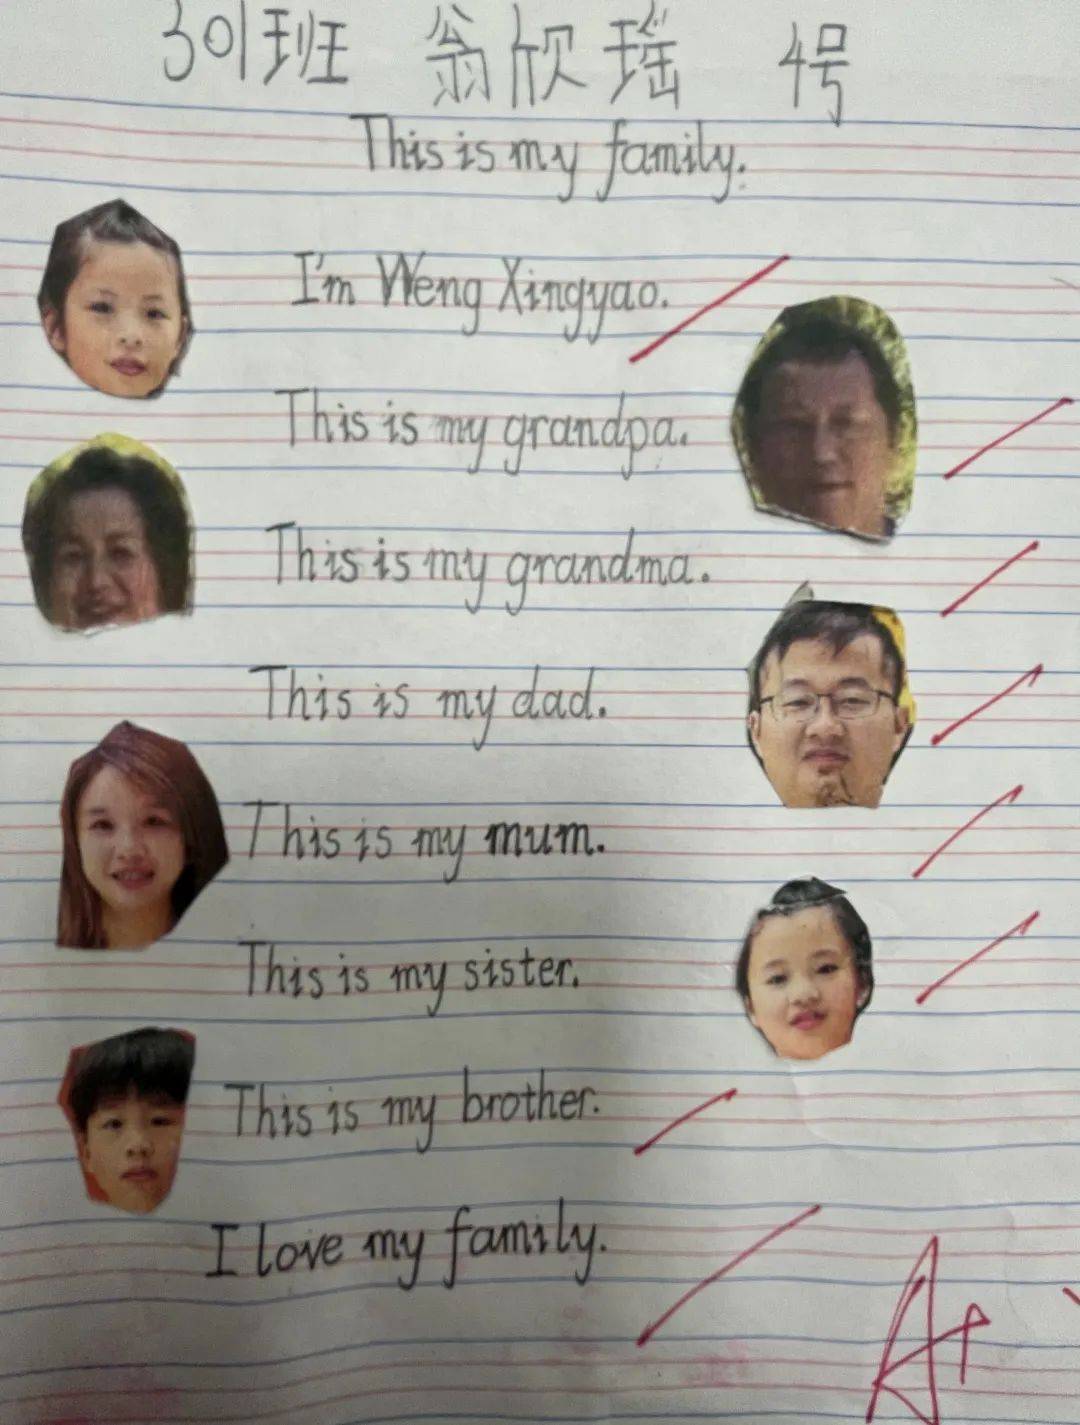 301班 翁欣瑶 4号
This is my family.
I'm Weng Xingyao.
This is my grandpa.
This is my grandma.
This is my dad.
This is my mum.
This is my sister.
This is my brother.
I love my family.
A+